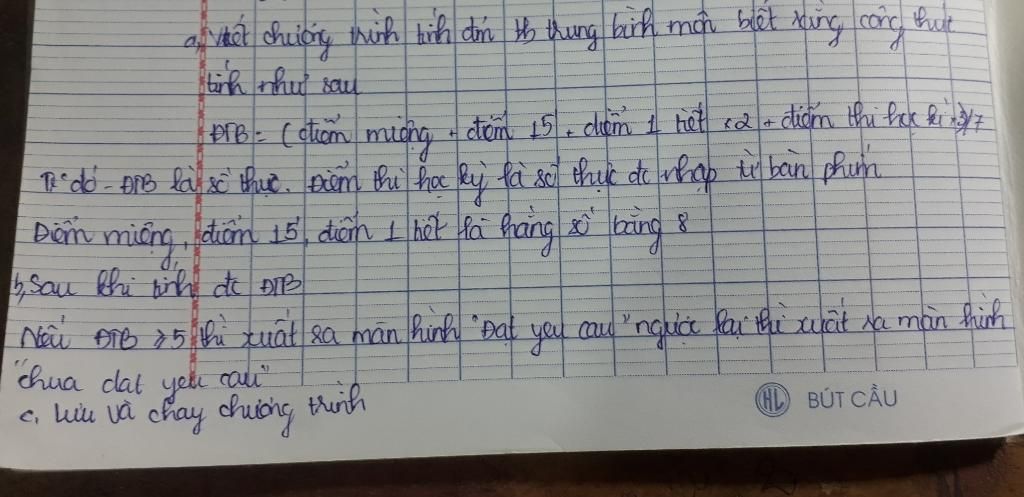 a, viết chương trình tính điểm tb trung bình môn biết rằng công thức
tính như sau
ĐTB = (điểm miệng + điểm 15' + điểm 1 tiết x2 + điểm thi học kì x3)/7
Tr đó - ĐTB là số thực. Điểm thi học kỳ là số thực đc nhập từ bàn phím
Điểm miệng, điểm 15', điểm 1 tiết là hằng số bằng 8
b, Sau khi tính đc ĐTB
Nếu ĐTB ≥5 thì xuất ra màn hình "Đạt yeu cau" ngược lại thì xuất ra màn hình
"chua dat yeu cau"
c, lưu và chạy chương trình
HL BÚT CẦU